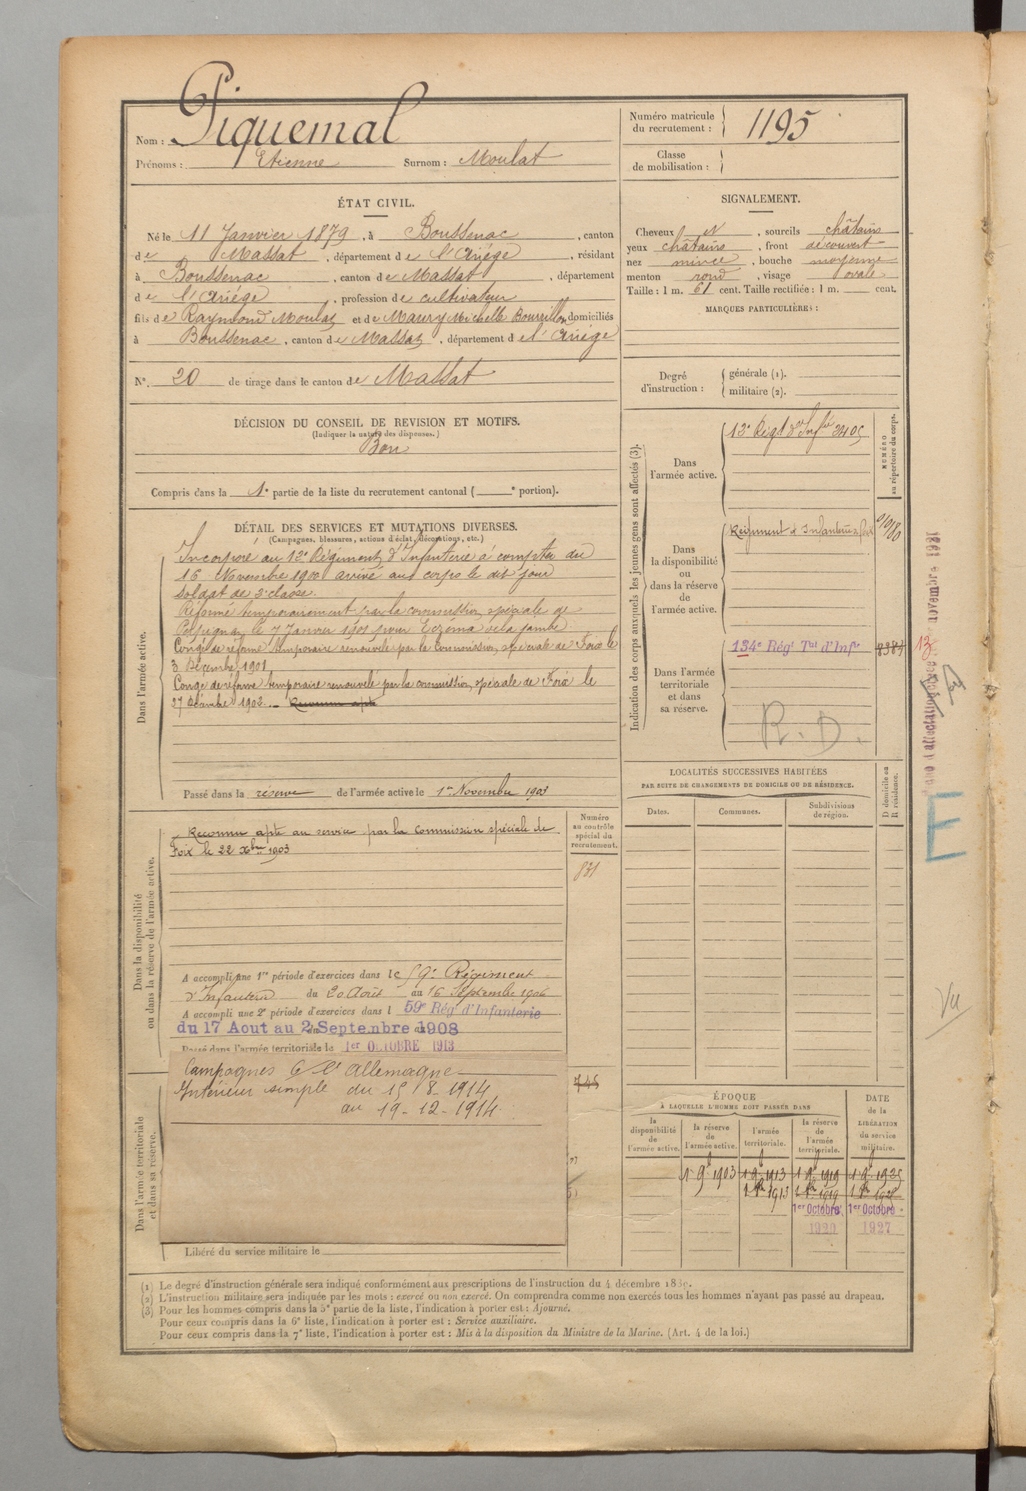 Nom : Piquemal
Prénoms : Etienne Surnom : Moulat
Numéro matricule du recrutement : 1195
Classe de mobilisation :
ÉTAT CIVIL.
Né le 11 Janvier 1879, à Boussenac, canton
de Massat, département de l'Ariège, résidant
à Boussenac, canton de Massat, département
de l'Ariège, profession de cultivateur
fils de Raymond Moulat et de Maury Michelle Bourrillon, domiciliés
à Boussenac, canton de Massat, département de l'Ariège
N° 20 de tirage dans le canton de Massat
SIGNALEMENT.
Cheveux et, sourcils châtains
yeux châtains, front découvert
nez mince, bouche moyenne
menton rond, visage ovale
Taille : 1 m. 61 cent. Taille rectifiée : 1 m. cent.
MARQUES PARTICULIÈRES :
Degré d'instruction : générale (1).
militaire (2).
DÉCISION DU CONSEIL DE REVISION ET MOTIFS.
(Indiquer la nature des dispenses.)
Bon
Compris dans la 1e partie de la liste du recrutement cantonal ( e portion).
DÉTAIL DES SERVICES ET MUTATIONS DIVERSES.
(Campagnes, blessures, actions d'éclat, décorations, etc.)
Dans l'armée active.
Incorporé au 12e Régiment d'Infanterie à compter du
16 Novembre 1900 arrivé au corps le dit jour
soldat de 2e classe.
Réformé temporairement par la commission spéciale de
Perpignan le 7 Janvier 1901 pour Eczéma de la jambe
Congé de réforme temporaire renouvelé par la commission spéciale de Foix le
3 Décembre 1901
Congé de réforme temporaire renouvelé par la commission spéciale de Foix le
27 Décembre 1902. Reconnu apte
Passé dans la réserve de l'armée active le 1er Novembre 1903
Indication des corps auxquels les jeunes gens sont affectés (3).
NUMÉRO au répertoire du corps.
Dans l'armée active.
12e Régt d'Infie
Dans la disponibilité ou dans la réserve de l'armée active.
Régiment d'Infanterie Foix
Dans l'armée territoriale et dans sa réserve.
134e Régt Tal d'Infie
R. D.
LOCALITÉS SUCCESSIVES HABITÉES
PAR SUITE DE CHANGEMENTS DE DOMICILE OU DE RÉSIDENCE.
Dates. Communes. Subdivisions de région. D domicile ou R résidence.
Dans la disponibilité ou dans la réserve de l'armée active.
Reconnu apte au service par la Commission spéciale de
Foix le 22 Xbre 1903
Numéro au contrôle spécial du recrutement.
831
A accompli une 1re période d'exercices dans le 59e Régiment
d'Infanterie du 20 Août au 16 Septembre 1906
A accompli une 2e période d'exercices dans l 59e Rég d'Infanterie
du 17 Aout au 2 Septembre 1908
Passé dans l'armée territoriale le 1er OCTOBRE 1913
Dans l'armée territoriale et dans sa réserve.
Campagnes C l'Allemagne
Intérieur simple du 15 8-1914
au 19-12-1914
745
Libéré du service militaire le
ÉPOQUE
À LAQUELLE L'HOMME DOIT PASSER DANS
la disponibilité de l'armée active. la réserve de l'armée active. l'armée territoriale. la réserve de l'armée territoriale. DATE de la LIBÉRATION du service militaire.
1 9 1903 1 9 1913 1 9 1919 1 9 1925
1913 1919
1er Octobre 1er Octobre
1920 1927
E
Vu
(1) Le degré d'instruction générale sera indiqué conformément aux prescriptions de l'instruction du 4 décembre 1889.
(2) L'instruction militaire sera indiquée par les mots : exercé ou non exercé. On comprendra comme non exercés tous les hommes n'ayant pas passé au drapeau.
(3) Pour les hommes compris dans la 5e partie de la liste, l'indication à porter est : Ajourné.
Pour ceux compris dans la 6e liste, l'indication à porter est : Service auxiliaire.
Pour ceux compris dans la 7e liste, l'indication à porter est : Mis à la disposition du Ministre de la Marine. (Art. 4 de la loi.)